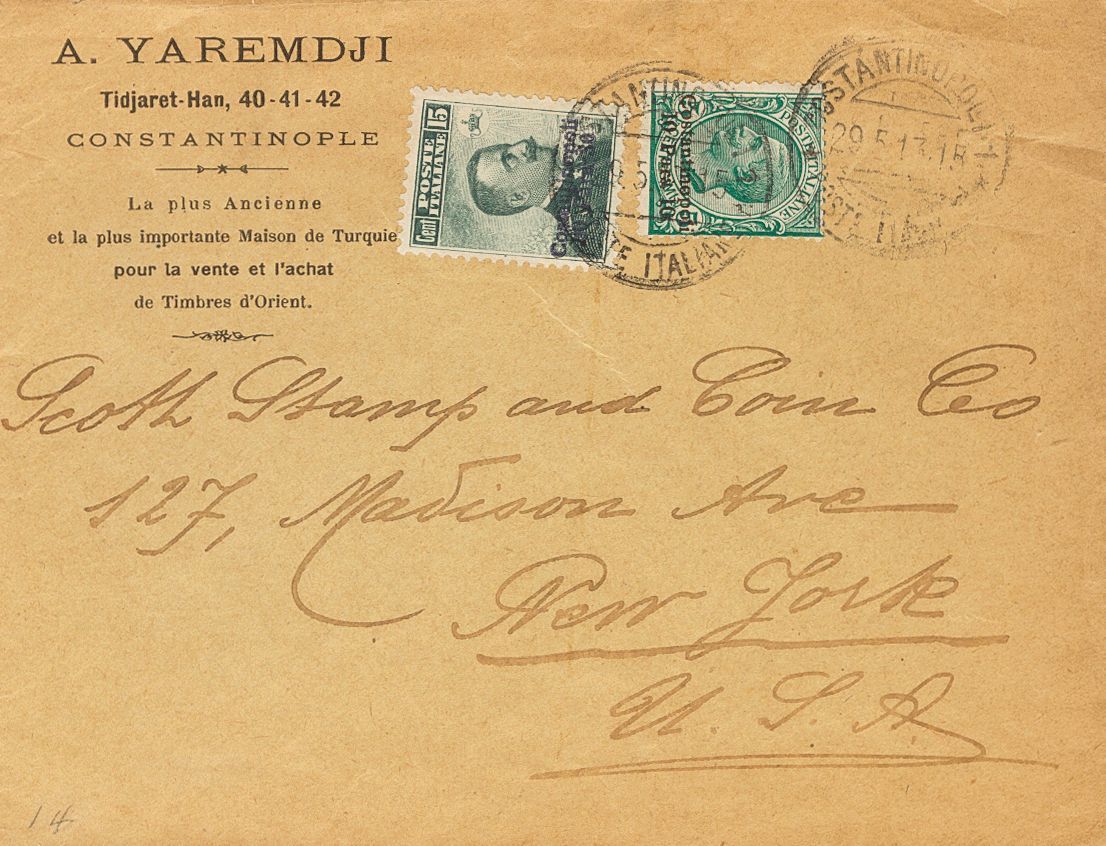 A. YAREMDJI
Tidjaret-Han, 40-41-42
CONSTANTINOPLE
La plus Ancienne
et la plus importante Maison de Turquie
pour la vente et l'achat
de Timbres d'Orient.
Cent 15
POSTE
ITALIANE
POSTE ITALIANE
Costantinopoli
10 Paras 10
29.5.13.15
Scott Stamp and Coin Co
127, Madison Ave
New York
U. S. A.
14